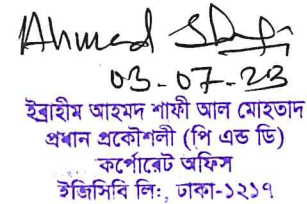 Ahmed Shafi
03-07-23
ইব্রাহীম আহমদ শাফী আল মোহতাদ
প্রধান প্রকৌশলী (পি এন্ড ডি)
কর্পোরেট অফিস
ইজিসিবি লি:, ঢাকা-১২১৭